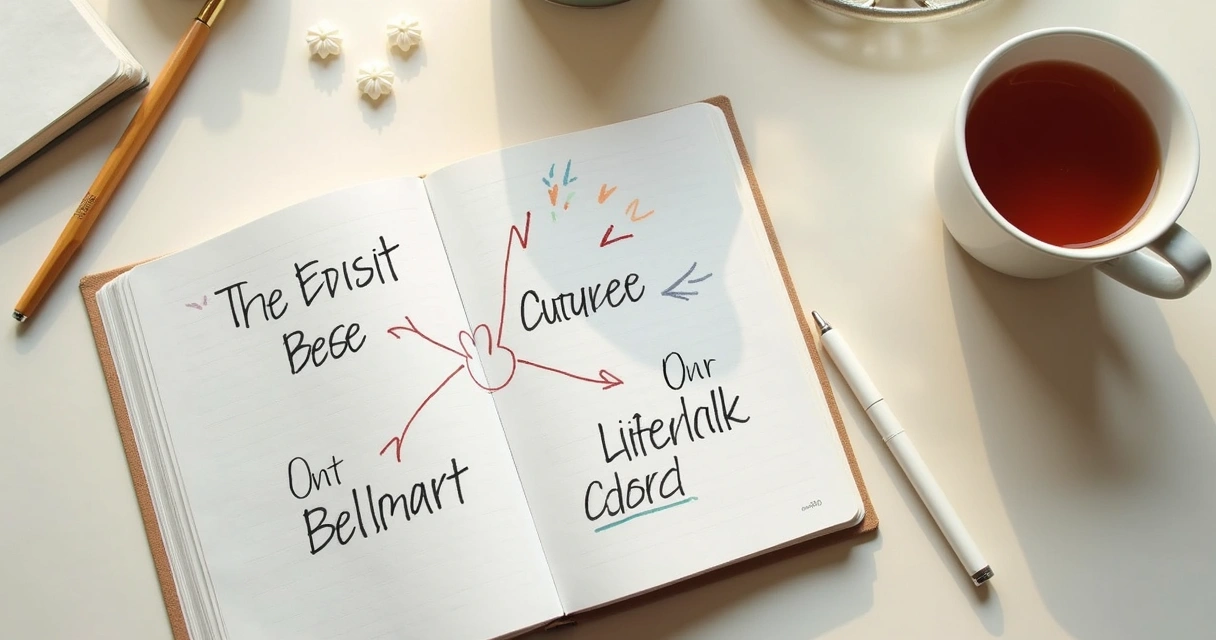 The Edisit
Bese
Ont
Bellmart
Cuturee
Our
Liiterlalk
Cdord